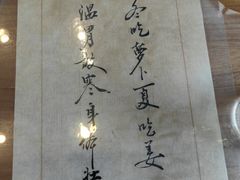 冬吃萝卜夏吃姜
温胃散寒身体壮